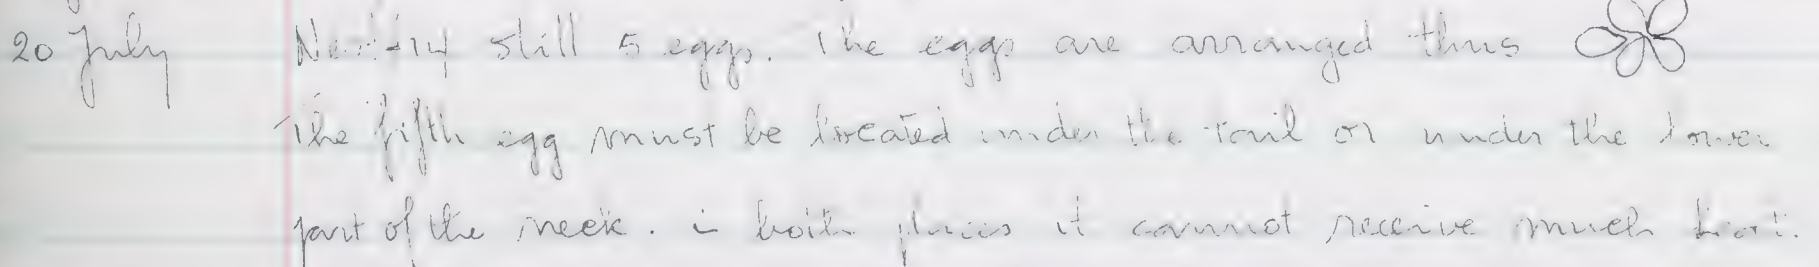 20 July Nest 14 still 5 eggs. The eggs are arranged thus
The fifth egg must be located under the tail or under the lower
part of the neck. in both places it cannot receive much heat.